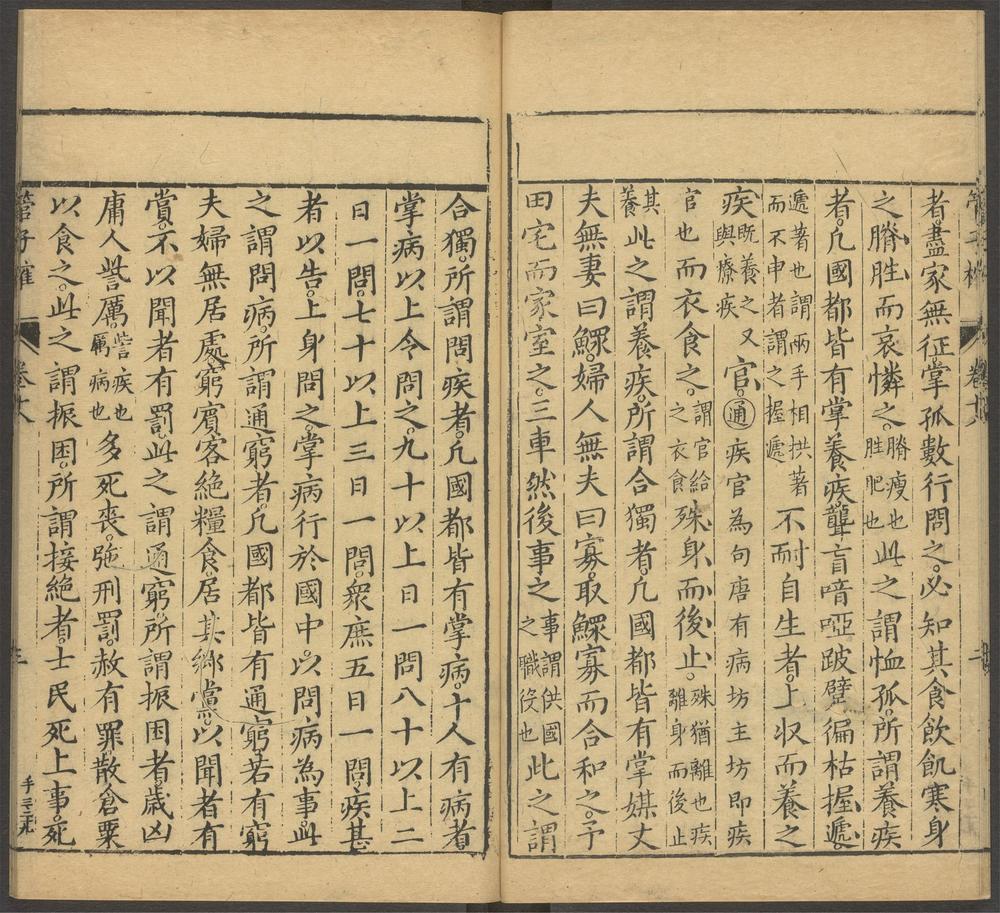 者盡家無征掌孤數行問之必知其食飲飢寒身
之膌胜而哀憐之膌瘦也胜肥也此之謂恤孤所謂養疾
者凡國都皆有掌養疾聾盲喑啞跛躄偏枯握遞
遞著也謂兩手相拱著而不申者謂之握遞不耐自生者上収而養之
疾既養之又與療疾官通疾官為句唐有病坊主坊即疾
官也而衣食之謂官給之衣食殊身而後止殊猶離也疾離身而後止
其養此之謂養疾所謂合獨者凡國都皆有掌媒丈
夫無妻曰鰥婦人無夫曰寡取鰥寡而合和之予
田宅而家室之三車然後事之事謂供國之職役也此之謂
合獨所謂問疾者凡國都皆有掌病士人有病者
掌病以上令問之九十以上日一問八十以上二
日一問七十以上三日一問衆庶五日一問疾甚
者以告上身問之掌病行於國中以問病為事此
之謂問病所謂通窮者凡國都皆有通窮若有窮
夫婦無居處窮賓客絶糧食居其鄉黨以聞者有
賞不以聞者有罰此之謂通窮所謂振困者歲凶
庸人訾厲訾疾也厲病也多死喪弛刑罰赦有罪散倉粟
以食之此之謂振困所謂接絶者士民死上事死
管子榷 卷十八